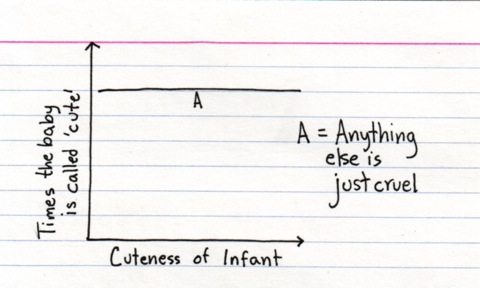 Times the baby
is called 'cute'
A
A = Anything
else is
just cruel
Cuteness of Infant